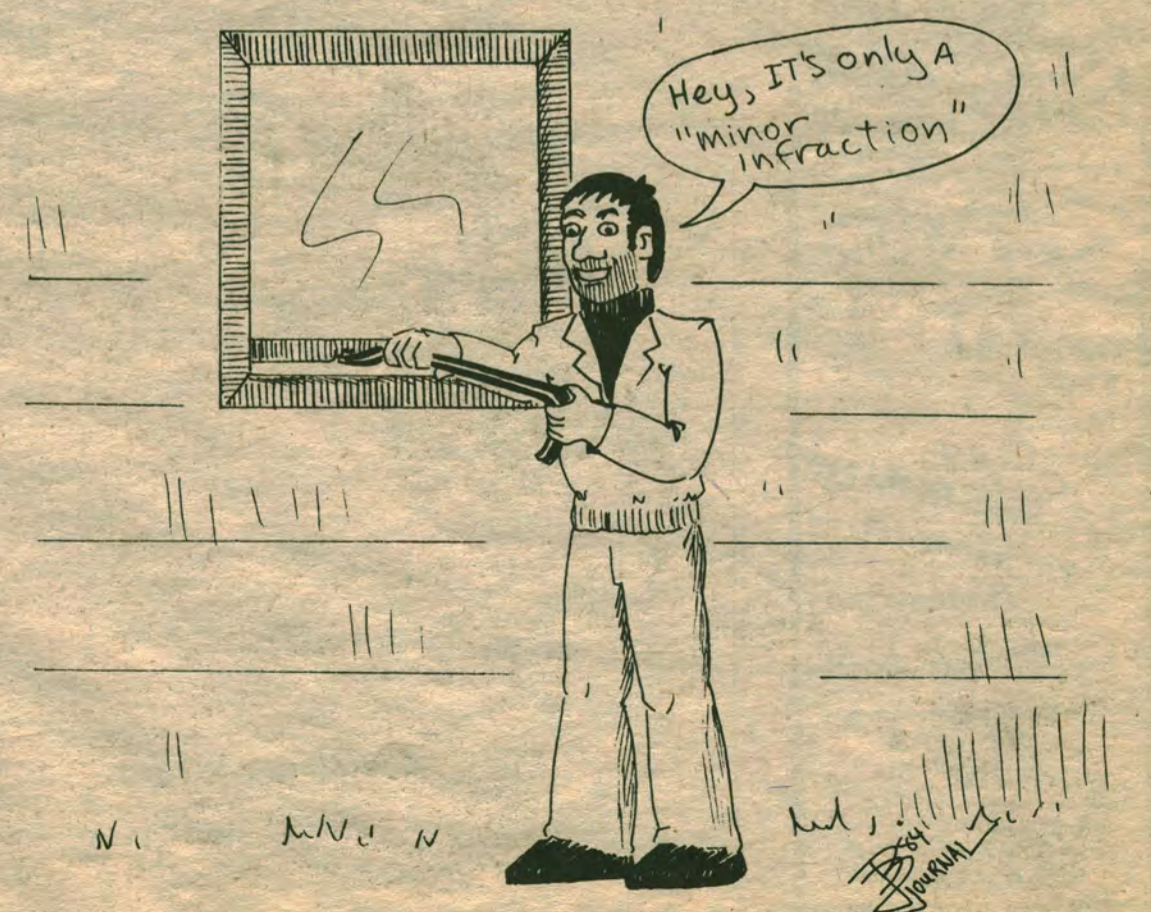 Hey, IT's only A
"minor
infraction"
'84
JOURNAL